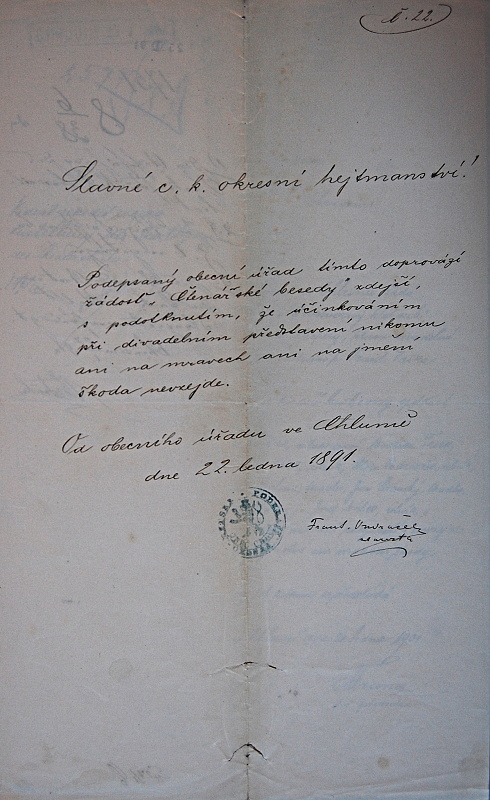 č. 22.
Slavné c. k. okresní hejtmanství!
Podepsaný obecní úřad tímto doprovází
žádosť „Čtenářské besedy“ zdejší,
s podotknutím, že účinkováním
při divadelním představení nikomu
ani na mravech ani na jmění
škoda nevzejde.
Od obecního úřadu ve Chlumě
dne 22. ledna 1891.
Frant. Ondráček
starosta